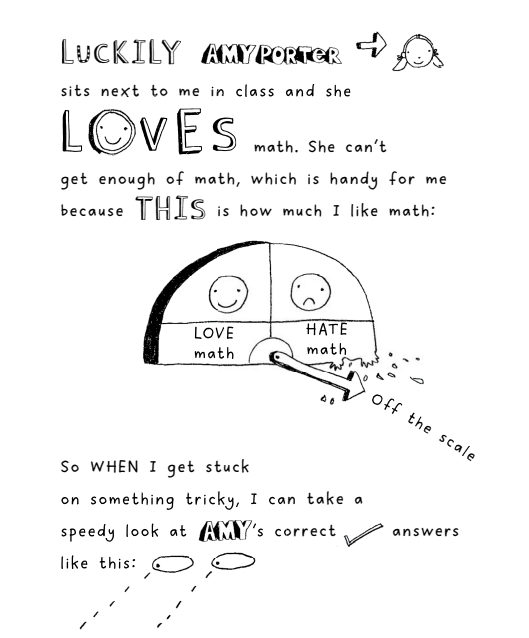 LUCKILY AMY PORTER
sits next to me in class and she
LOVES math. She can't
get enough of math, which is handy for me
because THIS is how much I like math:
LOVE
math
HATE
math
Off the scale
So WHEN I get stuck
on something tricky, I can take a
speedy look at AMY's correct answers
like this: